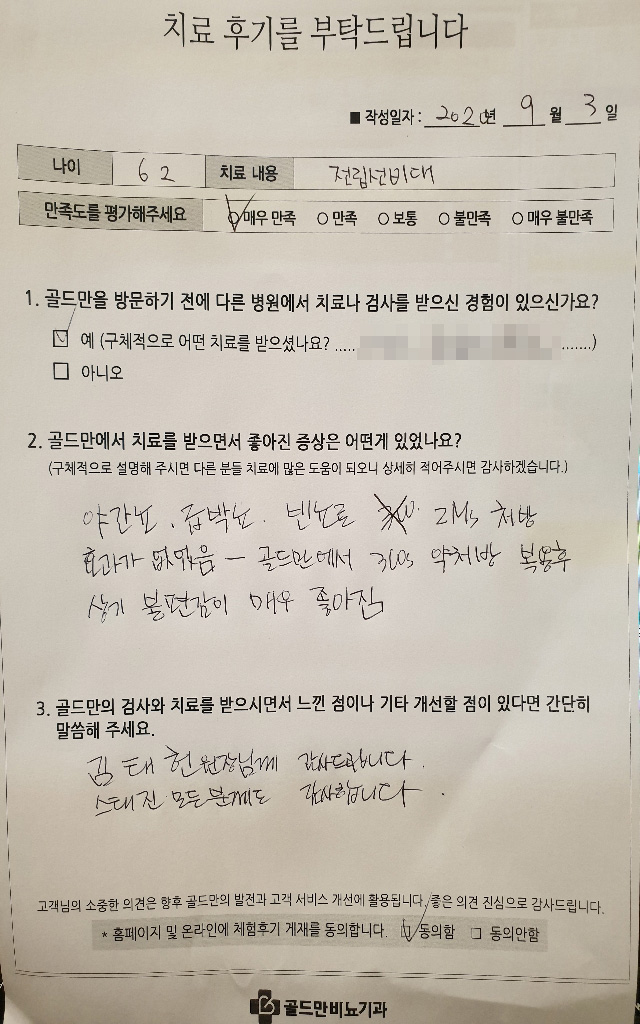 치료 후기를 부탁드립니다
■ 작성일자 : 2020년 9월 3일
나이 62 치료 내용 전립선비대
만족도를 평가해주세요 ○매우 만족 ○만족 ○보통 ○불만족 ○매우 불만족
1. 골드만을 방문하기 전에 다른 병원에서 치료나 검사를 받으신 경험이 있으신가요?
☑ 예 (구체적으로 어떤 치료를 받으셨나요? ..... .......)
□ 아니오
2. 골드만에서 치료를 받으면서 좋아진 증상은 어떤게 있었나요?
(구체적으로 설명해 주시면 다른 분들 치료에 많은 도움이 되오니 상세히 적어주시면 감사하겠습니다.)
야간뇨. 급박뇨. 빈뇨로 처방
효과가 없었음 - 골드만에서 약처방 복용후
상기 불편감이 매우 좋아짐
3. 골드만의 검사와 치료를 받으시면서 느낀 점이나 기타 개선할 점이 있다면 간단히
말씀해 주세요.
김태헌원장님께 감사드립니다.
스태진 모든분께도 감사합니다.
고객님의 소중한 의견은 향후 골드만의 발전과 고객 서비스 개선에 활용됩니다. 좋은 의견 진심으로 감사드립니다.
* 홈페이지 및 온라인에 체험후기 게재를 동의합니다. ☑ 동의함 □ 동의안함
골드만비뇨기과